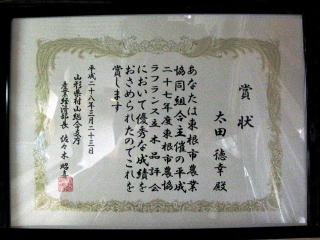 賞状
太田 徳幸 殿
あなたは東根市農業
協同組合主催の平成
二十七年度東根市農協
ラフランス立木品評会
において優秀な成績を
おさめられたのでこれを
賞します
平成二十八年三月二十三日
山形県村山総合支庁
産業経済部長 佐々木